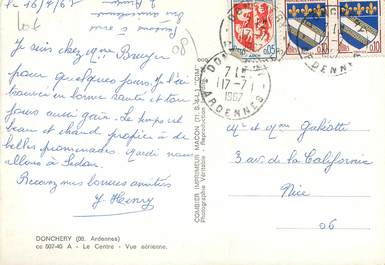 Le 16/7/67
Je suis chez Mme Breyer
pour quelques jours. Je l'ai
trouvée en bonne santé et tou
jours aussi gaie. Le temps est
beau et chaud propice à de
belles promenades. Mardi nous
allons à Sedan
Recevez mes bonnes amitiés
Y. Henry
DONCHERY (08. Ardennes)
cc 507-40 A - Le Centre - Vue aérienne.
COMBIER IMPRIMEUR MACON (71.S.-&-L.) "CIM"
Photographie Véritable - Reproduction
DONCHERY
7 H
17-7
1967
ARDENNES
0,05
0,10
0,10
Mr et Mme Galiotti
3 av. de la Californie
Nice
06